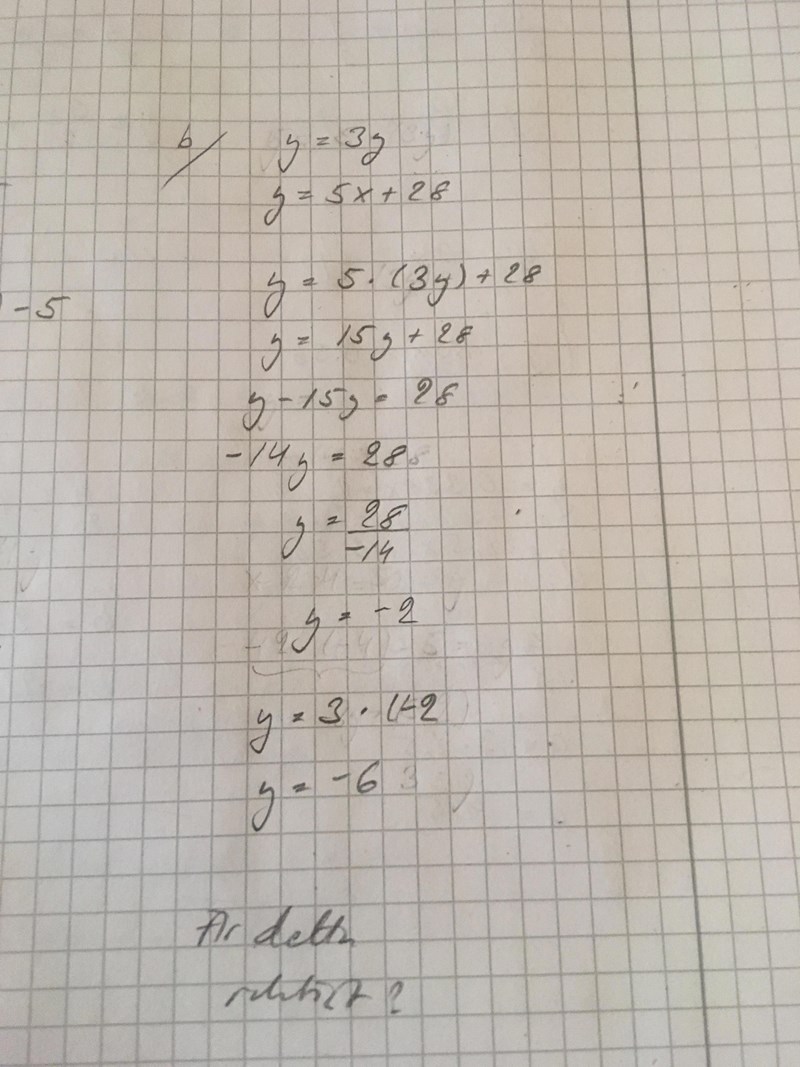 b/ y = 3y
y = 5x + 28
y = 5 · (3y) + 28
-5
y = 15y + 28
y - 15y = 28
-14y = 28
y = 28
-14
y = -2
y = 3 · (-2
y = -6
Är detta
riktigt?